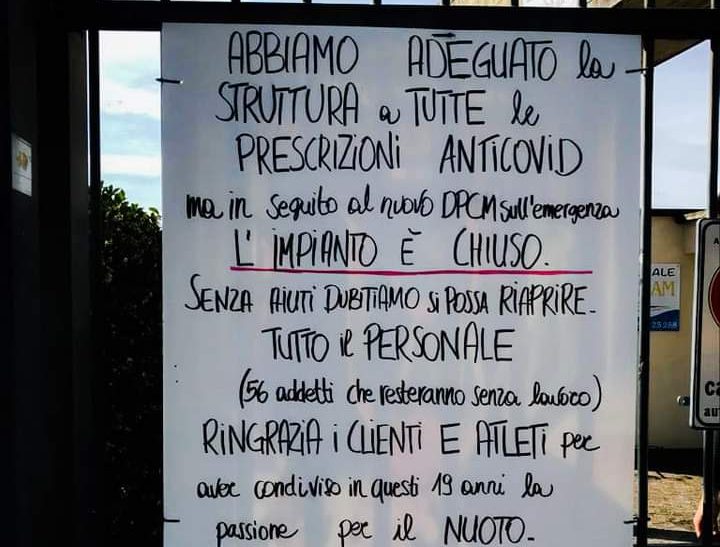 ABBIAMO ADEGUATO la
STRUTTURA a TUTTE le
PRESCRIZIONI ANTICOVID
ma in seguito al nuovo DPCM sull'emergenza
L'IMPIANTO È CHIUSO.
SENZA AIUTI DUBITIAMO si POSSA RIAPRIRE.
TUTTO il PERSONALE
(56 addetti che resteranno senza lavoro)
RINGRAZIA i CLIENTI E ATLETI per
aver condiviso in questi 19 anni la
passione per il NUOTO.
ALE
AM
25 258
Ca
aut